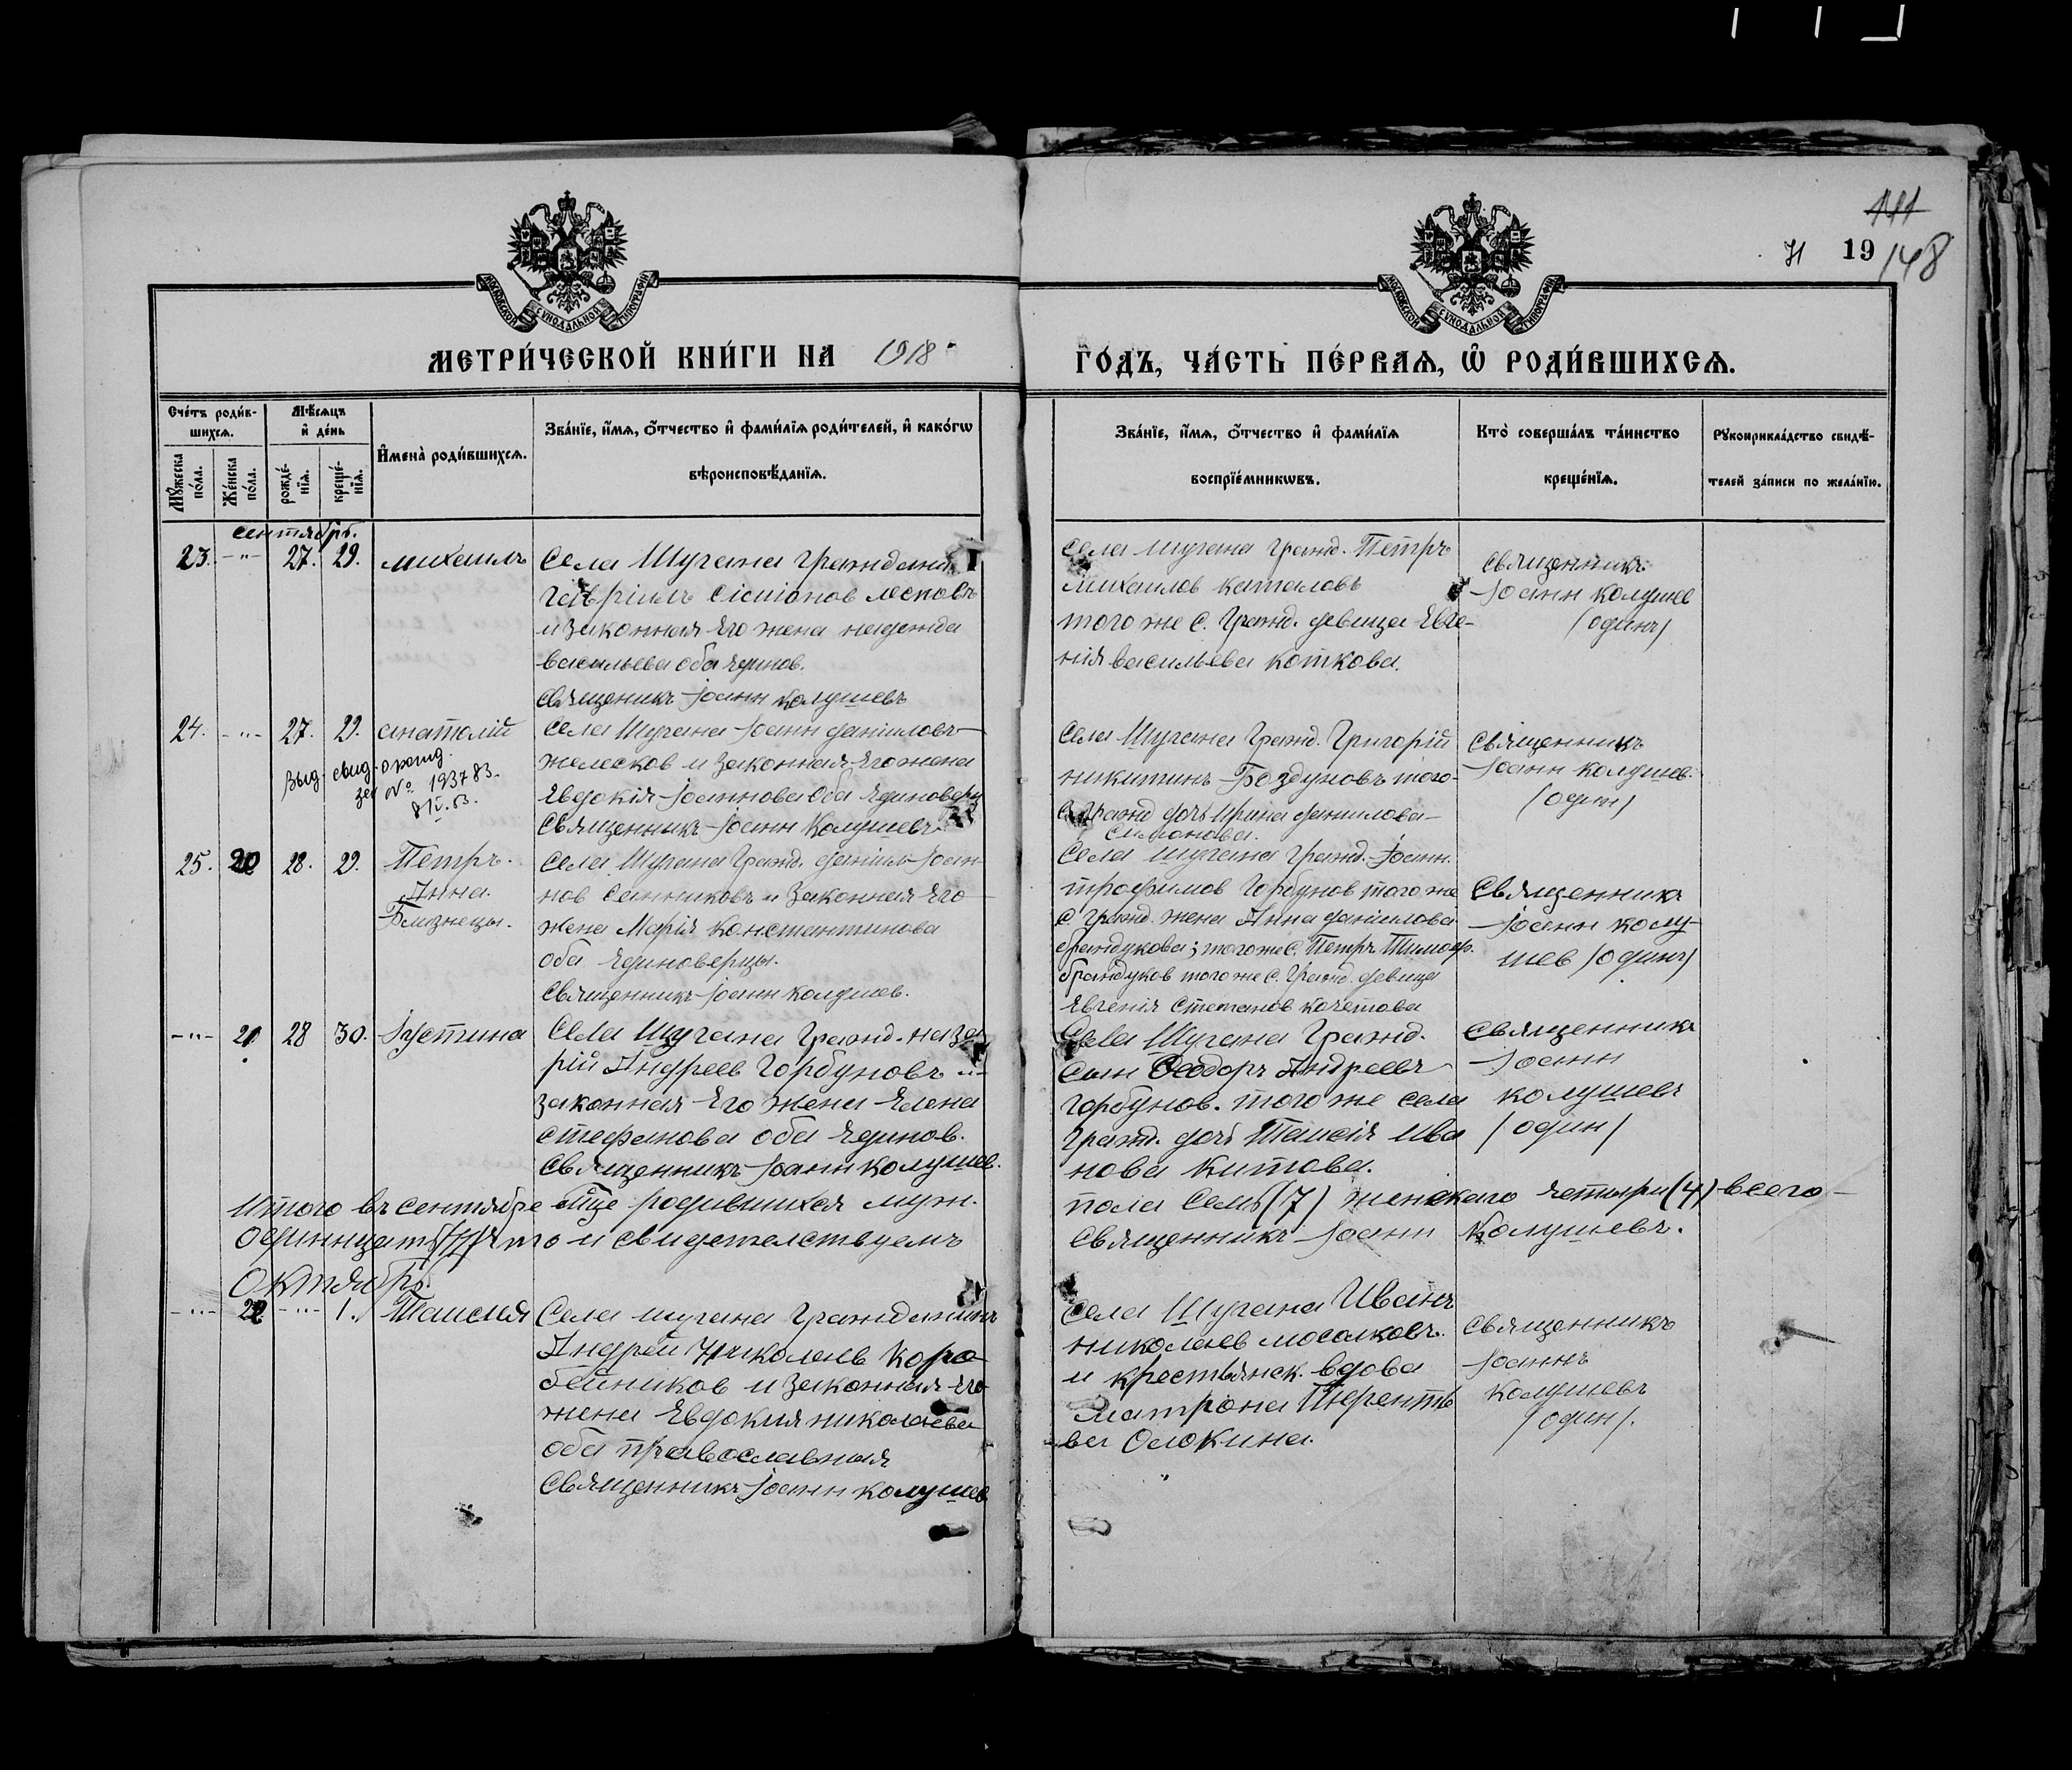 141
71 19 148
МЕТРИ́ЧЕСКОЙ КНИ́ГИ НА 1918
ГО́ДЪ, ЧА́СТЬ ПЕ́РВАѦ, Ѡ҆ РОДИ́ВШИХСѦ.
Сче́тъ роди́в-
шихсѧ.
Мѣ́сѧцъ
и҆ де́нь
И҆мена̀ роди́вшихсѧ.
Зва́нїе, и҆́мѧ, ѻ҆́тчество и҆ фами́лїѧ роди́телей, и҆ како́гѡ
вѣроисповѣ́данїѧ.
Мꙋ́жеска
по́ла.
Же́нска
по́ла.
рожде́-
нїѧ.
креще́-
нїѧ.
Зва́нїе, и҆́мѧ, ѻ҆́тчество и҆ фами́лїѧ
воспрїе́мникѡвъ.
Кто̀ соверша́лъ та́инство
креще́нїѧ.
Рꙋкоприкла́дство свидѣ́-
телей за́писи по жела́нїю.
сентябрь.
23. -"- 27. 29. михаилъ
Села Шугана Граждани
Гавріилъ
и законная его жена надежда
васильева оба единов.
священикъ Іоанн Колушевъ
села шугана гражд. Петръ
михаилов каталовъ
того же с. гражд. девица Евге-
нія васильева коткова.
священникъ
Іоанн колушев
(одинъ)
24. -"- 27. 29. анатолій
выд. свид. о рожд.
зел No 193783.
8/IV.53.
села Шугана Іоанн даниловъ
желесков и законная его жена
Евдокія Іоаннова оба единоверц
священникъ Іоанн Колушевъ
села Шугана Гражд. Григорій
никитинъ Боздуновъ того
с. гражд дочь Ирина данилова
симонова.
священникъ
Іоанн колушев.
(один)
25. 20 28. 29. Петръ.
Анна.
Близнецы.
села Шугана Гражд. даніил Іоан
нов Санников и законная его
жена Марія Константинова
оба единоверцы.
священникъ Іоанн колушев.
села шугана гражд. Іоанн.
трофимов Горбунов того же
с гражд. жена Анна данилова
брандукова; того же с. Петръ Тимоф.
брандуков того же с. гражд. девица
Евгенія Степанов кочетова
священникъ
Іоанн колу-
шев (одинъ)
-"- 21 28 30. Іустина
Села Шугана гражд. наза
рій Андреев Горбуновъ и
законная его жена Елена
стефанова оба единов.
священникъ Іоанн колушев.
Села Шугана гражд.
сын Феодоръ Андреевъ
горбунов. того же села
гражд. дочь Таисія ива
нова китова.
священникъ
Іоанн
колушевъ
(один)
Итого въ сентябре еще родившихся муж.
пола семь (7) женскаго четыри (4) всего
одиннцать (11) что и свидетелствуемъ
священникъ Іоанн Колушевъ.
Октябрь.
-"- 22 -"- 1. Таисия
Села шугана гражданинъ
Андрей Николаев Коро
бейников и законная его
жена Евдокия николаева
оба православныя
священникъ Іоанн колушев
села Шугана Иванъ
николаев мосалковъ.
и крестьянск. вдова
Матрона
ва Олокина.
священникъ
Іоаннъ
колушевъ
(один).